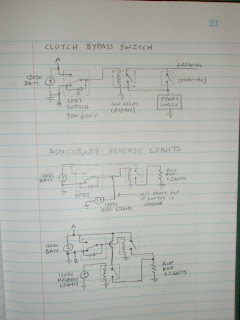 21
CLUTCH BYPASS SWITCH
A
12VDC
BATT.
SPDT
SWITCH
N.O. RELAY
(BYPASS)
START
LOGIC
AUXILIARY REVERSE LIGHTS
12VDC
BATT.
AUX
REV
LIGHTS
SPDT
12VDC
REV LIGHTS
A
12VDC
BATT.
12VDC
REVERSE
LIGHTS
AUX
REV
LIGHTS